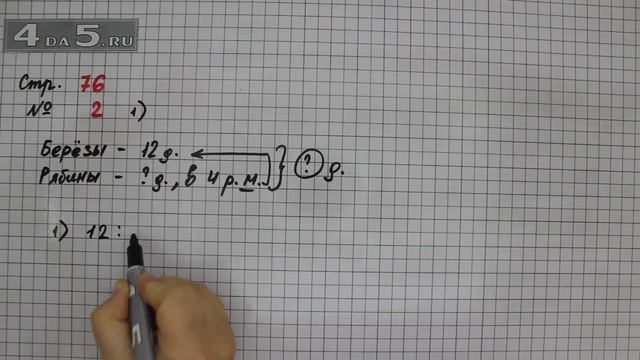 4DA5.RU
Стр. 76
№ 2 1)
Берёзы - 12 д.
Рябины - ? д., в 4 р. м. } ? д.
1) 12 :